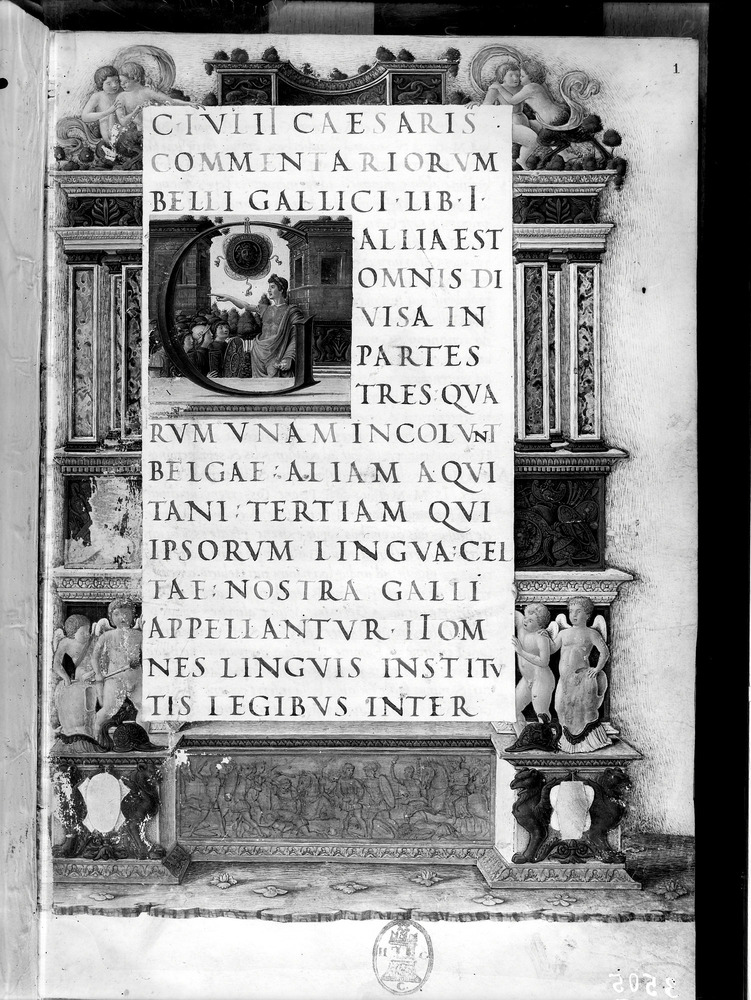 1
C·IVLII CAESARIS ·
COMMENTARIORVM
BELLI GALLICI·LIB·I·
GALLIA EST
OMNIS DI
VISA IN
PARTES
TRES:QVA
RVM VNAM INCOLVNT
BELGAE:ALIAM AQVI
TANI:TERTIAM QVI
IPSORVM LINGVA:CEL
TAE:NOSTRA GALLI
APPELLANTVR·II OM
NES LINGVIS INSTITV
TIS LEGIBVS INTER
H C
C.
3505